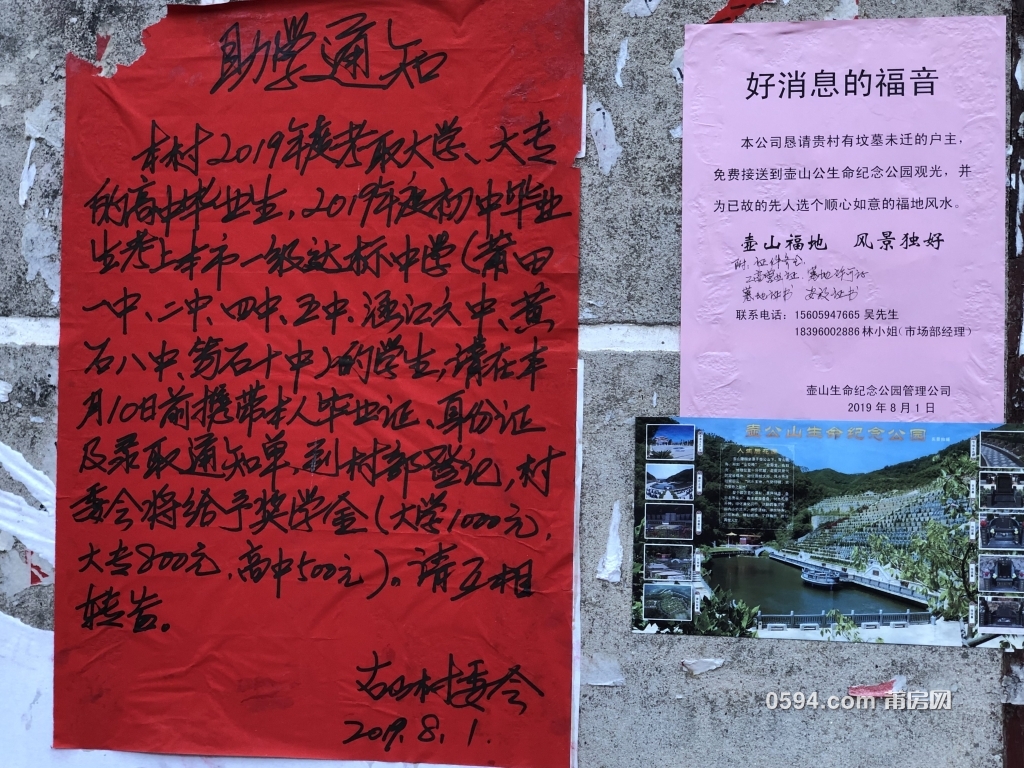 助学通知
本村2019年度考取大学、大专
的高中毕业生，2019年度初中毕业
生考上本市一级达标中学（莆田
一中、二中、四中、五中、涵江六中、黄
石八中、笏石十中）的学生，请在本
月10日前携带本人毕业证、身份证
及录取通知单，到村部登记，村
委会将给予奖学金（大学1000元，
大专800元，高中500元）。请互相
转告。
村委会
2019.8.1.
好消息的福音
本公司恳请贵村有坟墓未迁的户主，
免费接送到壶山公生命纪念公园观光，并
为已故的先人选个顺心如意的福地风水。
壶山福地 风景独好
附：证件齐全
工商营业证、墓地许可证
墓地证书
联系电话：15605947665 吴先生
18396002886 林小姐（市场部经理）
壶山生命纪念公园管理公司
2019 年 8 月 1 日
壶公山生命纪念公园
0594.com 莆房网